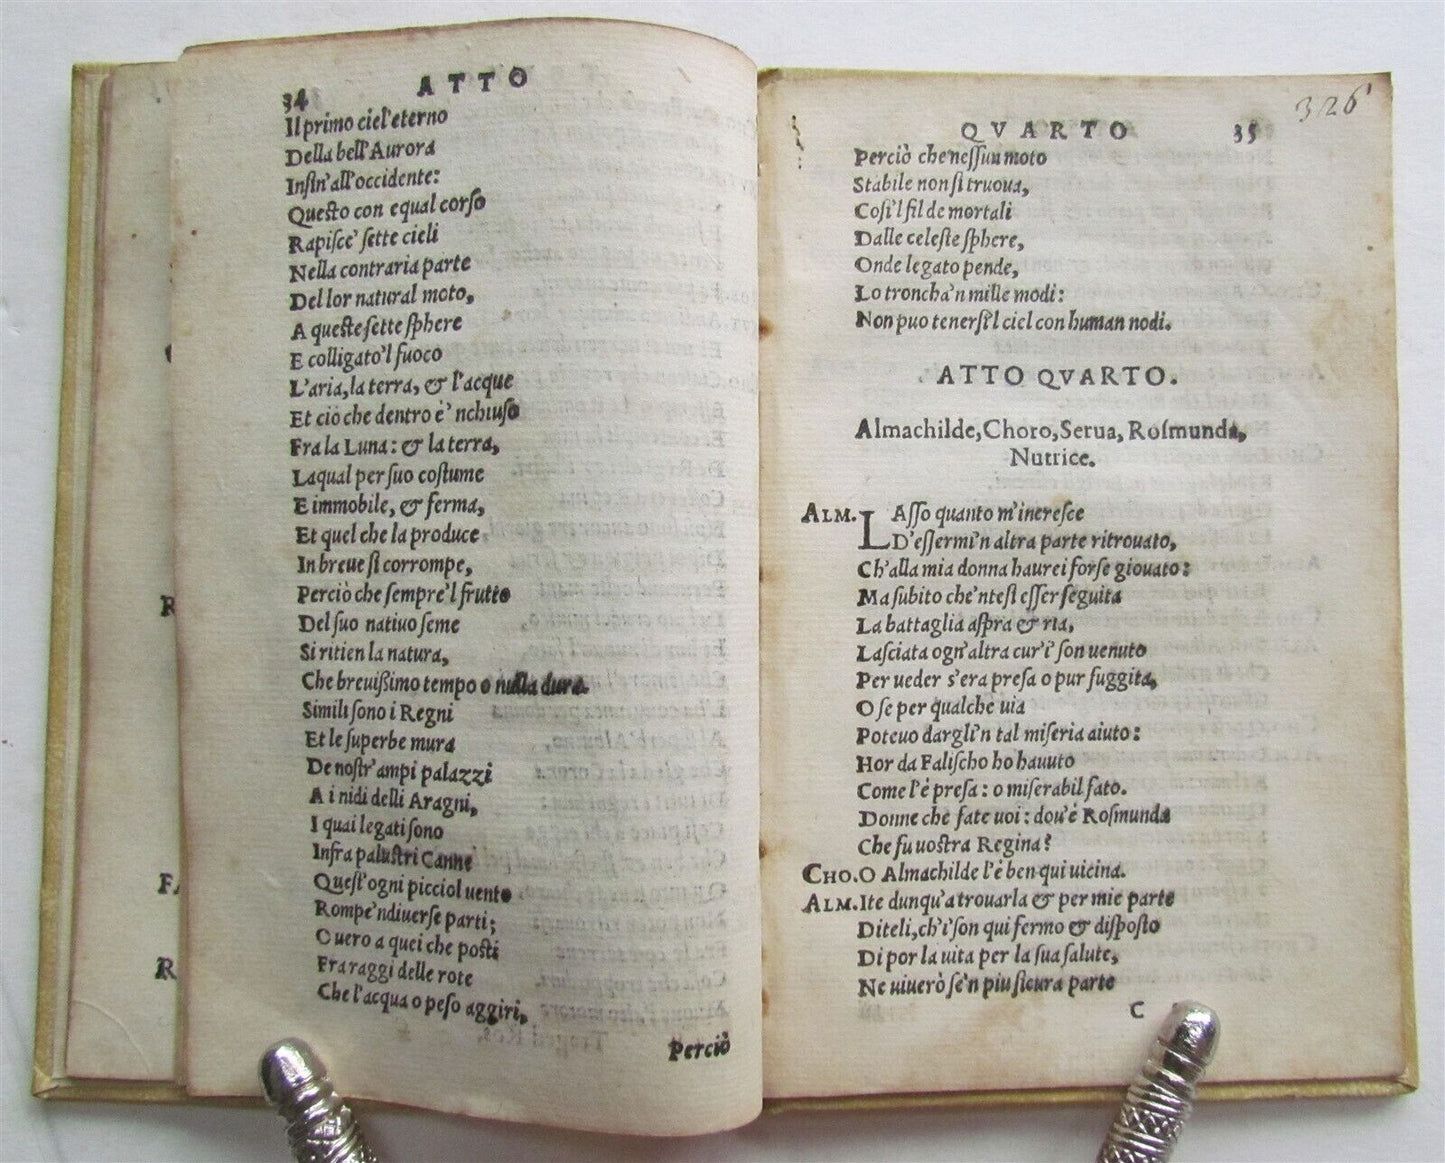 34 ATTO
Il primo ciel'eterno
Della bell'Aurora
Insin'all'occidente:
Questo con equal corso
Rapisce' sette cieli
Nella contraria parte
Del lor natural moto,
A queste sette sphere
E colligato'l fuoco
L'aria, la terra, & l'acque
Et ciò che dentro è 'nchiuso
Fra la Luna: & la terra,
Laqual per suo costume
E immobile, & ferma,
Et quel che la produce,
In breue si corrompe,
Perciò che sempre'l frutto
Del suo natiuo seme
Si ritien la natura,
Che breuißimo tempo o nulla dura.
Simili sono i Regni
Et le superbe mura
De nostr'ampi palazzi
A i nidi delli Aragni,
I quai legati sono
Infra palustri Canne
Quest'ogni picciol uento
Rompe'ndiuerse parti;
O uero a quei che posti
Fra raggi delle rote
Che l'acqua o peso aggiri,
Perciò
326
QVARTO 35
Perciò che nessun moto
Stabile non si truoua,
Cosi'l fil de mortali
Dalle celeste sphere,
Onde legato pende,
Lo troncha'n mille modi:
Non puo tenersi'l ciel con human nodi.
ATTO QVARTO.
Almachilde, Choro, Serua, Rosmunda,
Nutrice.
ALM. LAsso quanto m'incresce
D'essermi'n altra parte ritrouato,
Ch'alla mia donna haurei forse giouato:
Ma subito che'ntesi esser seguita
La battaglia aspra & ria,
Lasciata ogn'altra cur'i' son uenuto
Per ueder s'era presa o pur fuggita,
O se per qualche uia
Poteuo dargli'n tal miseria aiuto:
Hor da Falischo ho hauuto
Come l'è presa: o miserabil fato.
Donne che fate uoi: dou'è Rosmunda
Che fu uostra Regina?
CHO. O Almachilde l'è ben qui uicina.
ALM. Ite dunqu'a trouarla & per mie parte
Diteli, ch'i' son qui fermo & disposto
Di por la uita per la sua salute,
Ne uiuerò se'n piu sicura parte
C